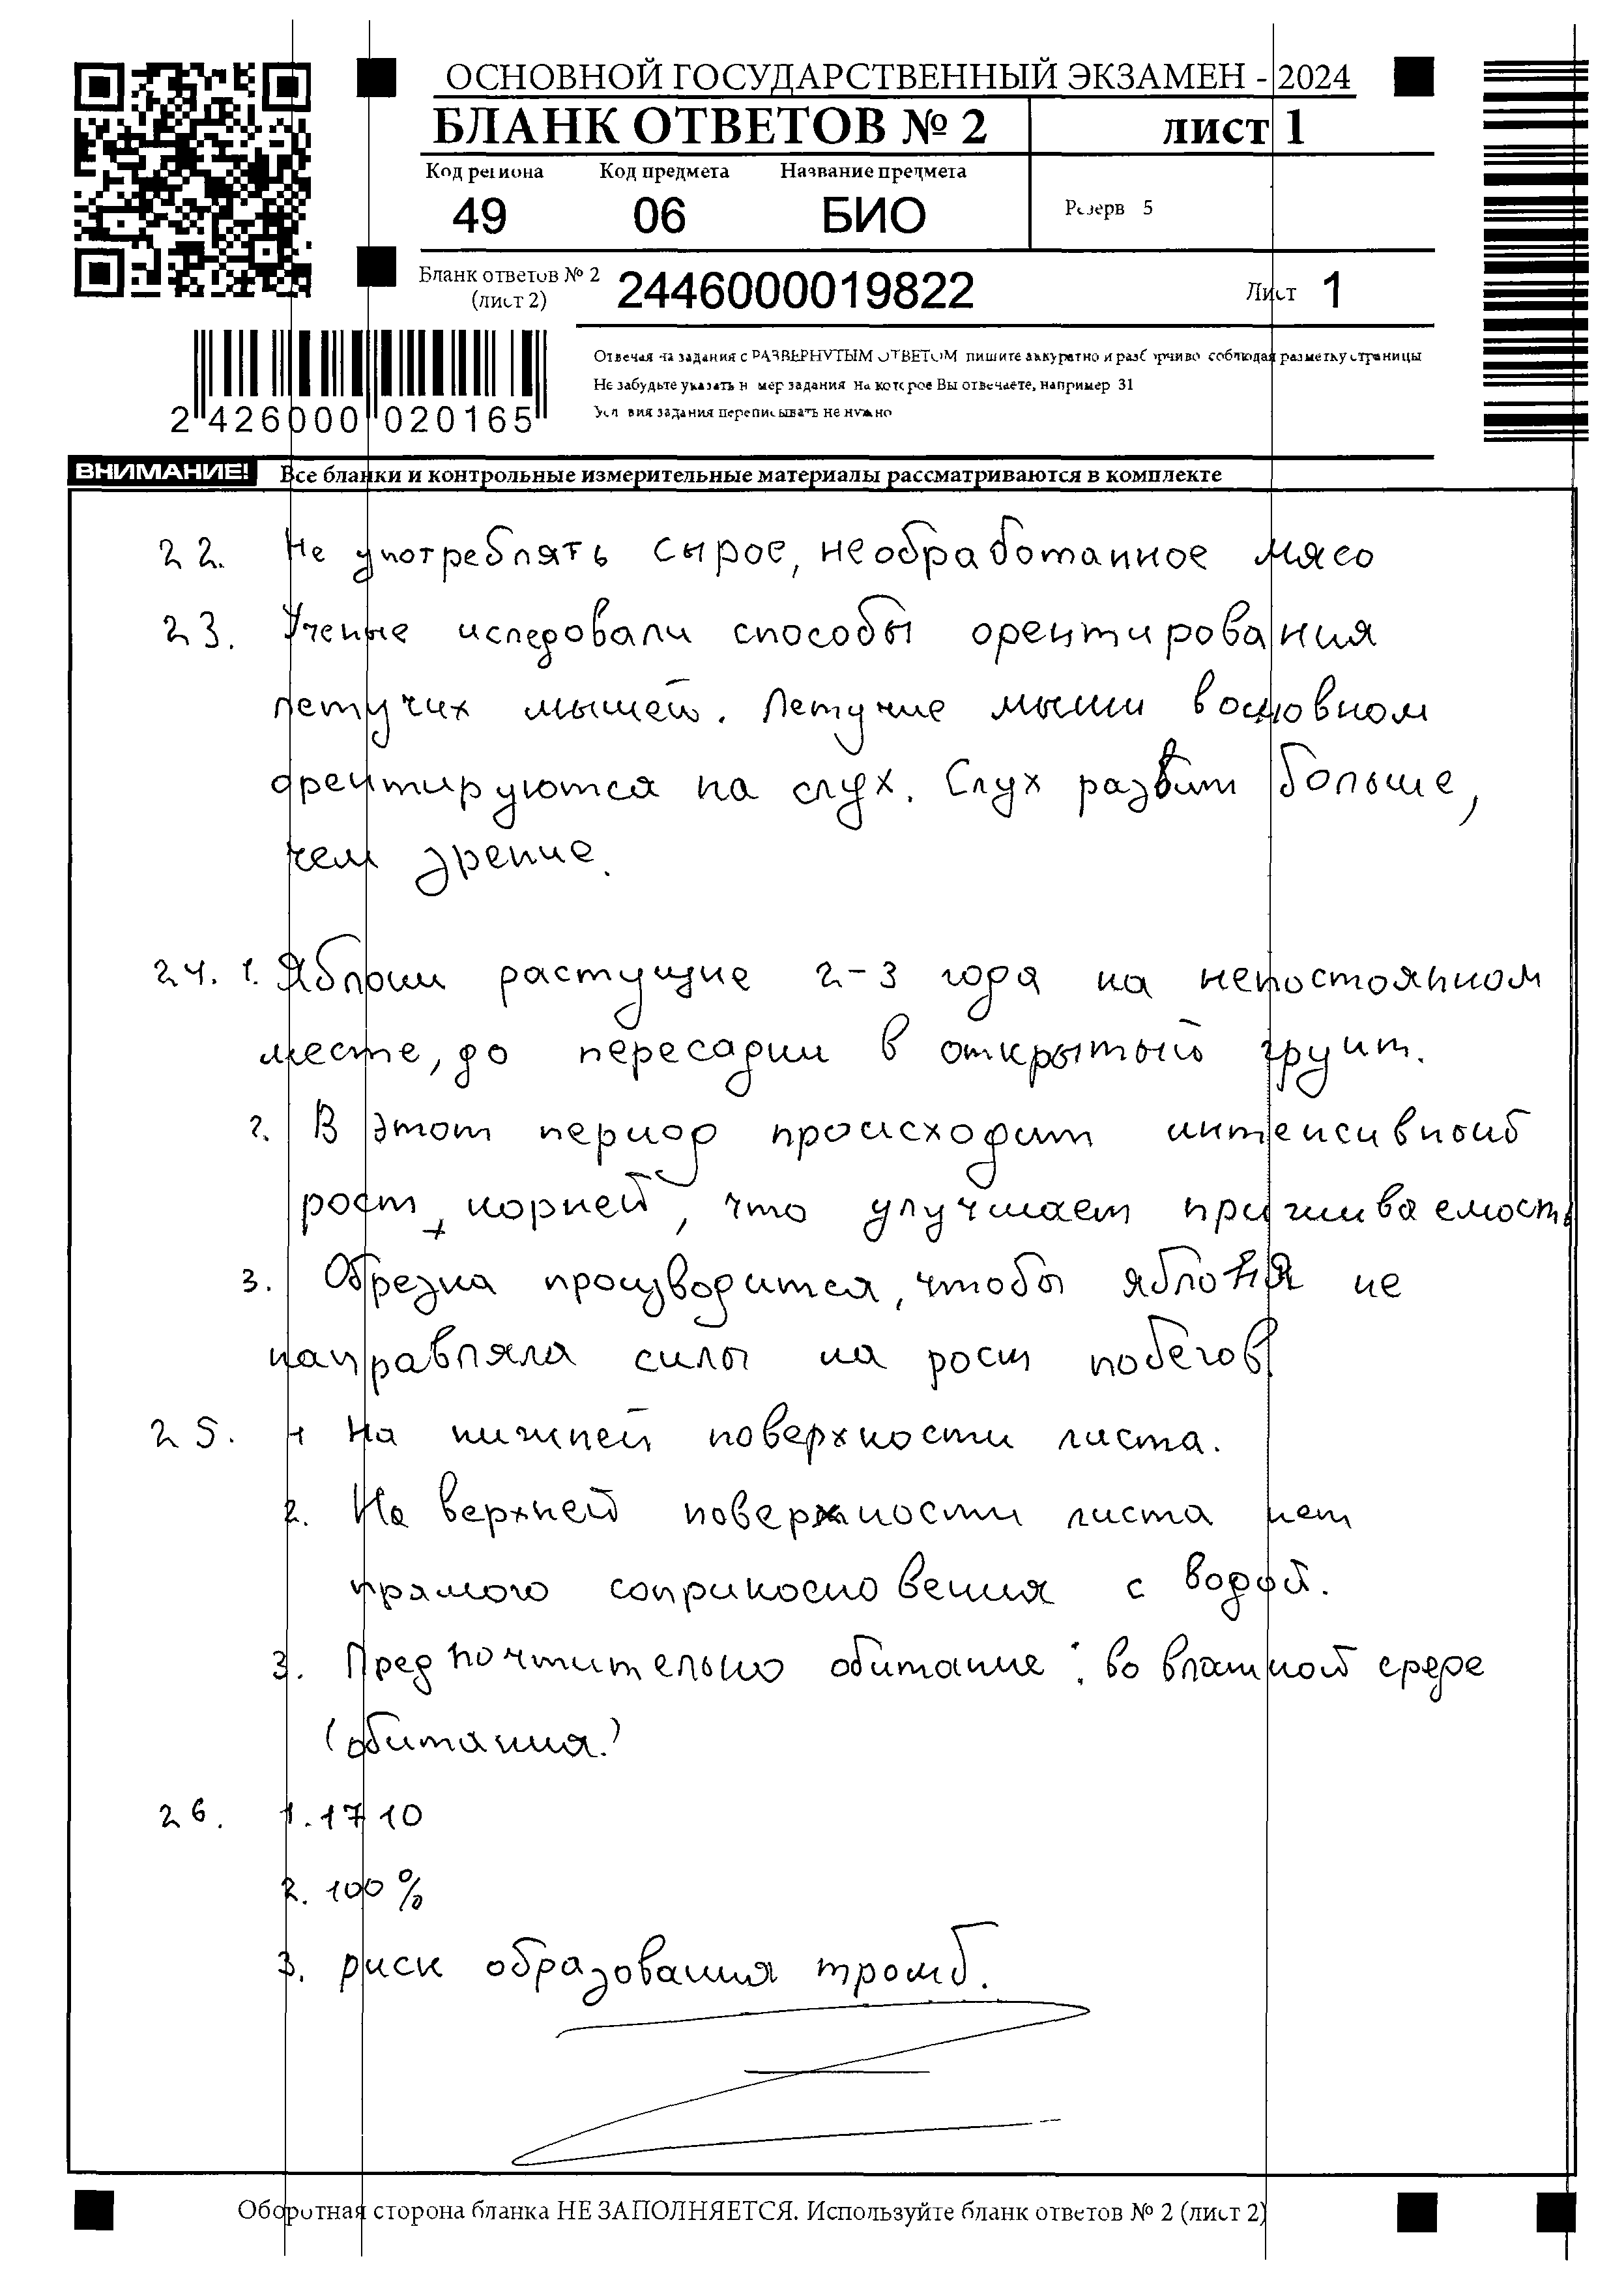 ОСНОВНОЙ ГОСУДАРСТВЕННЫЙ ЭКЗАМЕН - 2024
БЛАНК ОТВЕТОВ № 2 лист 1
Код региона Код предмета Название предмета
49 06 БИО Резерв 5
Бланк ответов № 2
(лист 2) 2446000019822 Лист 1
Отвечая на задания с РАЗВЕРНУТЫМ ОТВЕТОМ пишите аккуратно и разборчиво соблюдая разметку страницы
Не забудьте указать номер задания на которое Вы отвечаете, например 31
Условия задания переписывать не нужно
2 426000 020165
ВНИМАНИЕ! Все бланки и контрольные измерительные материалы рассматриваются в комплекте
22. Не употреблять сырое, необработанное мясо
23. Ученые иследовали способы орентирования
летучих мышей. Летучие мыши восновном
орентируются на слух. Слух развит больше,
чем зрение.
24. 1. Яблони растущие 2-3 года на непостоянном
месте, до пересадки в открытый грунт.
2. В этот период происходит интенсивный
рост корней, что улучшает приживаемость
3. Обрезка производится, чтобы яблоня не
направляла силы на рост побегов
25. 1 На нижней поверхности листа.
2. На верхней поверхности листа нет
прямого соприкосновения с водой.
3. Предпочтительно обитание: во влажной среде
(обитания.)
26. 1. 1710
2. 100%
3. риск образования тромб.
Оборотная сторона бланка НЕ ЗАПОЛНЯЕТСЯ. Используйте бланк ответов № 2 (лист 2)